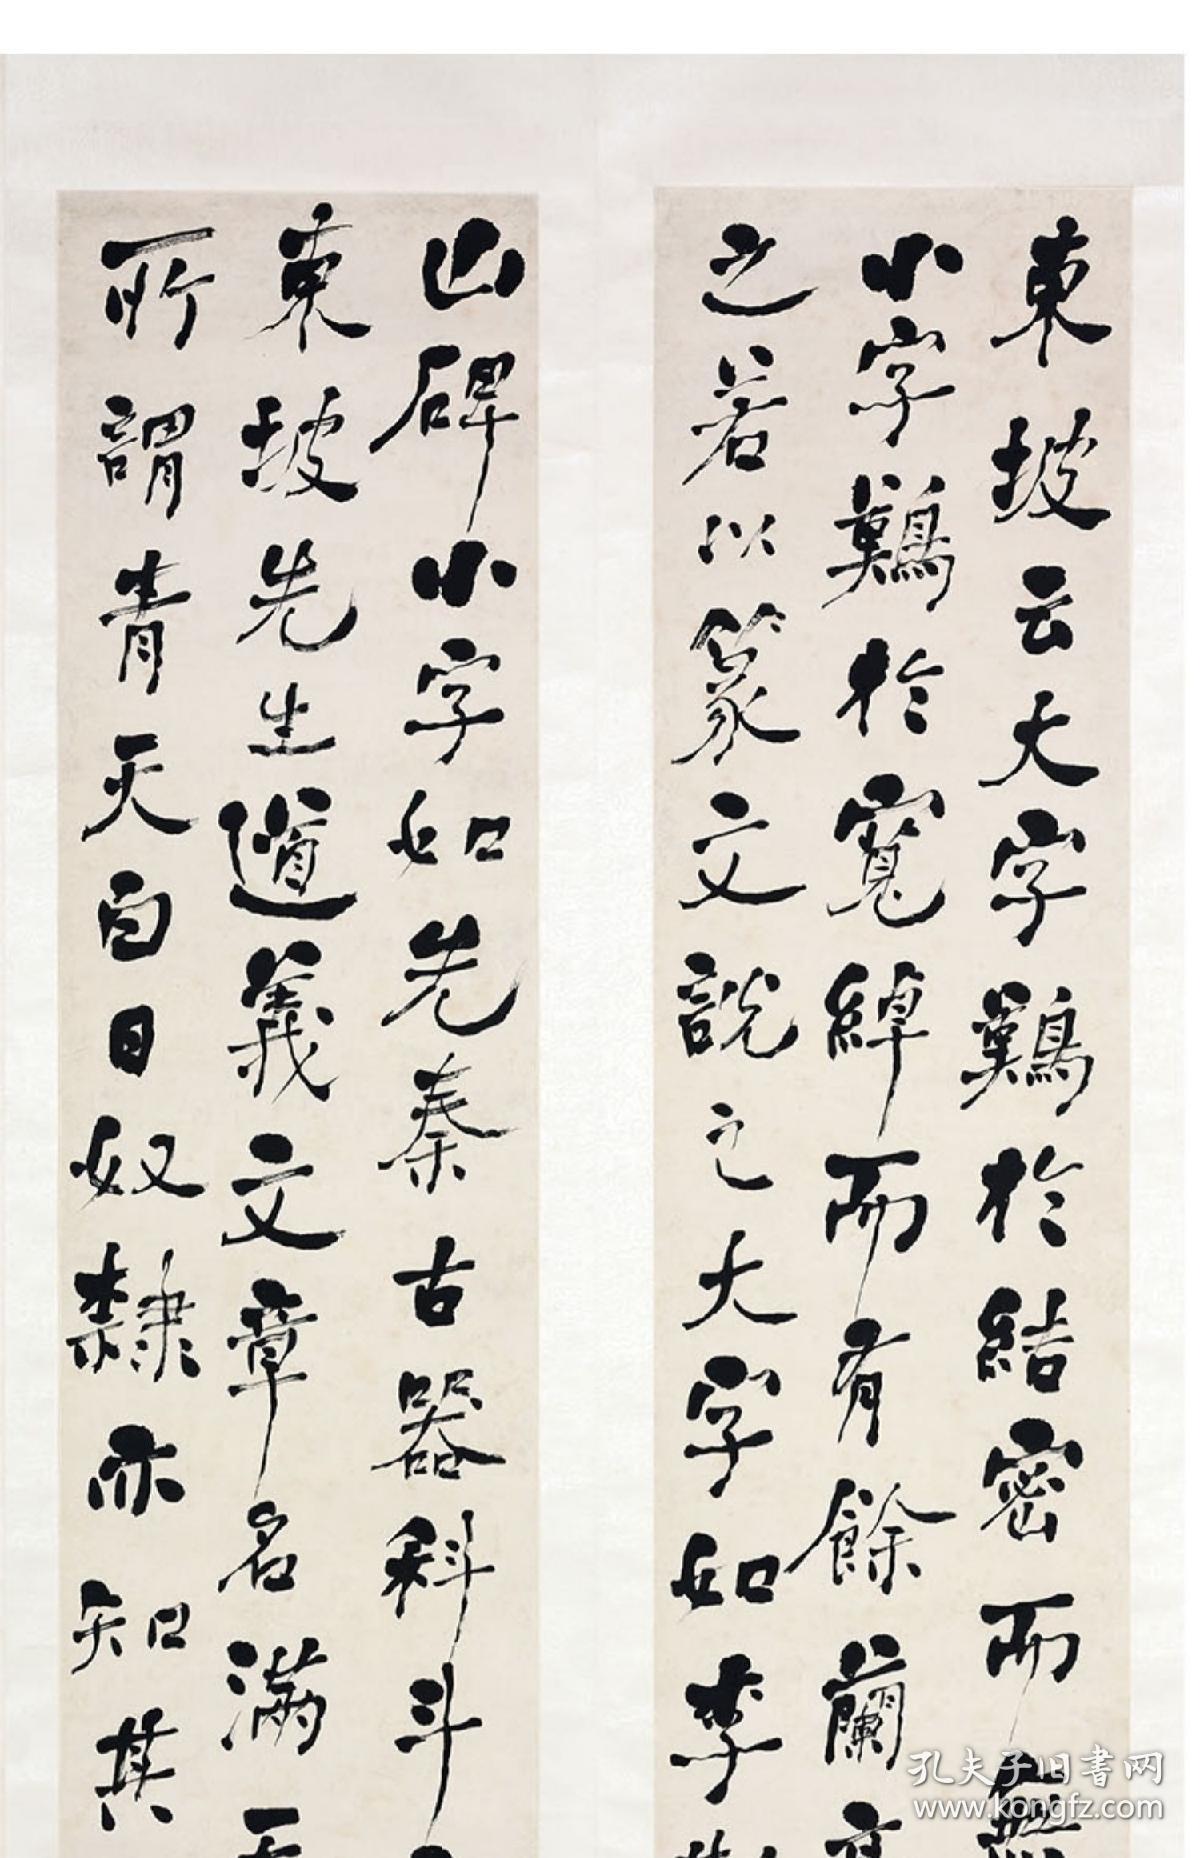 東坡云大字難於結密而無
小字難於寬綽而有餘蘭亭
之若以篆文説之大字如李斯
山碑小字如先秦古器科斗
東坡先生道義文章名滿天
所謂青天白日奴隸亦知其
孔夫子旧书网
www.kongfz.com